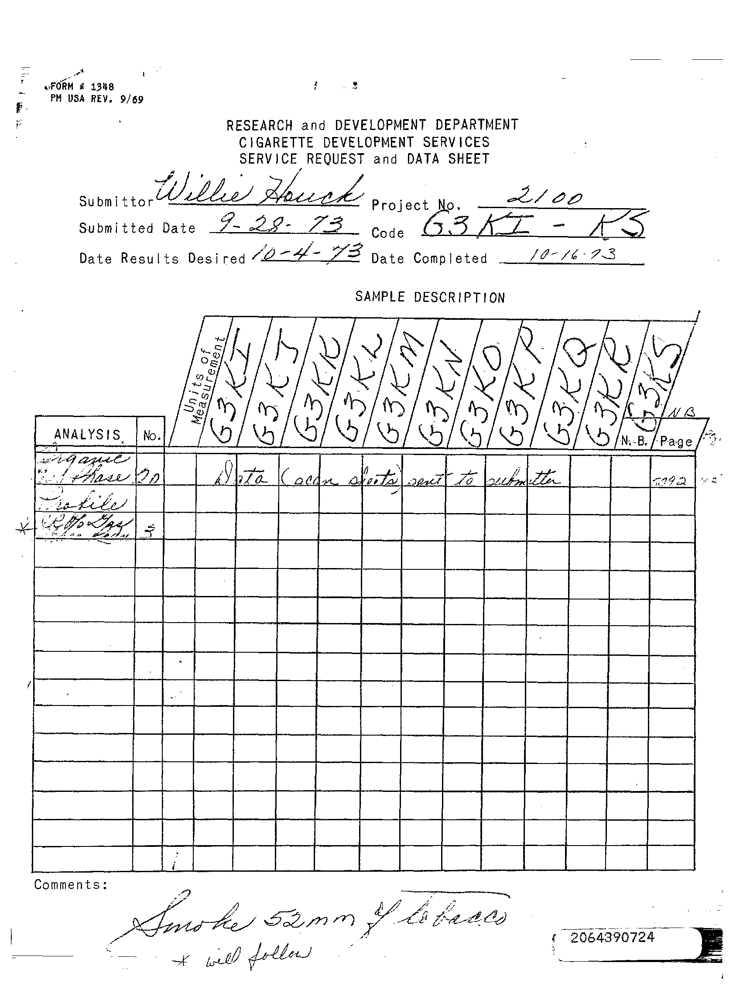 FORM # 1348
PM USA REV. 9/69
RESEARCH and DEVELOPMENT DEPARTMENT
CIGARETTE DEVELOPMENT SERVICES
SERVICE REQUEST and DATA SHEET
Submittor Willie Houck Project No. 2100
Submitted Date 9-28-73 Code G3KI - KS
Date Results Desired 10-4-73 Date Completed 10-16-73
SAMPLE DESCRIPTION
Units of Measurement G3KI G3KJ G3KK G3KL G3KM G3KN G3KO G3KP G3KQ G3KR G3KS
NB
ANALYSIS No. N.B. Page
Organic
Phase Data (scan sheets) sent to submitter
Profile
*
Comments:
Smoke 52mm of tobacco
* will follow
2064390724